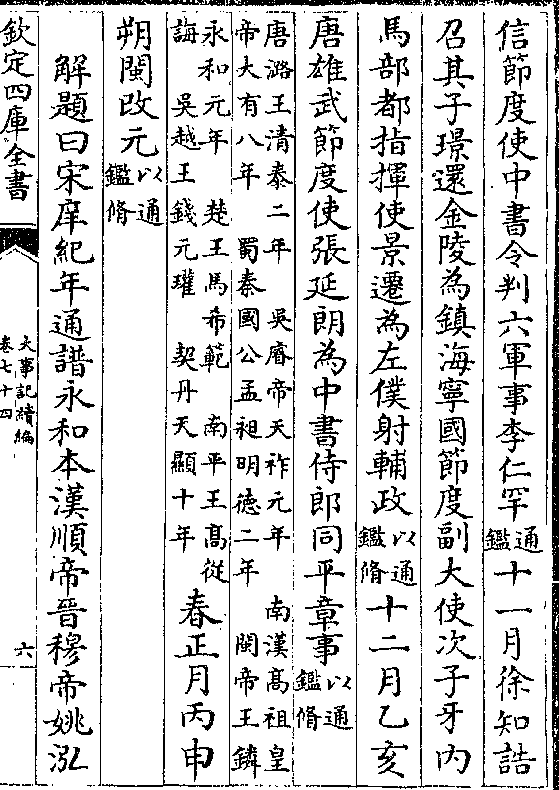 信節度使中書令判六軍事李仁罕通鑑十一月徐知誥
召其子璟還金陵為鎮海寧國節度副大使次子牙內
馬部都指揮使景遷為左僕射輔政以通鑑脩十二月乙亥
唐雄武節度使張延朗為中書侍郎同平章事以通鑑脩
唐潞王清泰二年　吳睿帝天祚元年　南漢高祖皇
帝大有八年　蜀秦國公孟昶明德二年　閩帝王鏻
永和元年　楚王馬希範　南平王高從
誨　吳越王錢元瓘　契丹天顯十年
春正月丙申
朔閩改元以通鑑脩
解題曰宋庠紀年通譜永和本漢順帝晉穆帝姚泓
欽定四庫全書
大事記續編
卷七十四
六